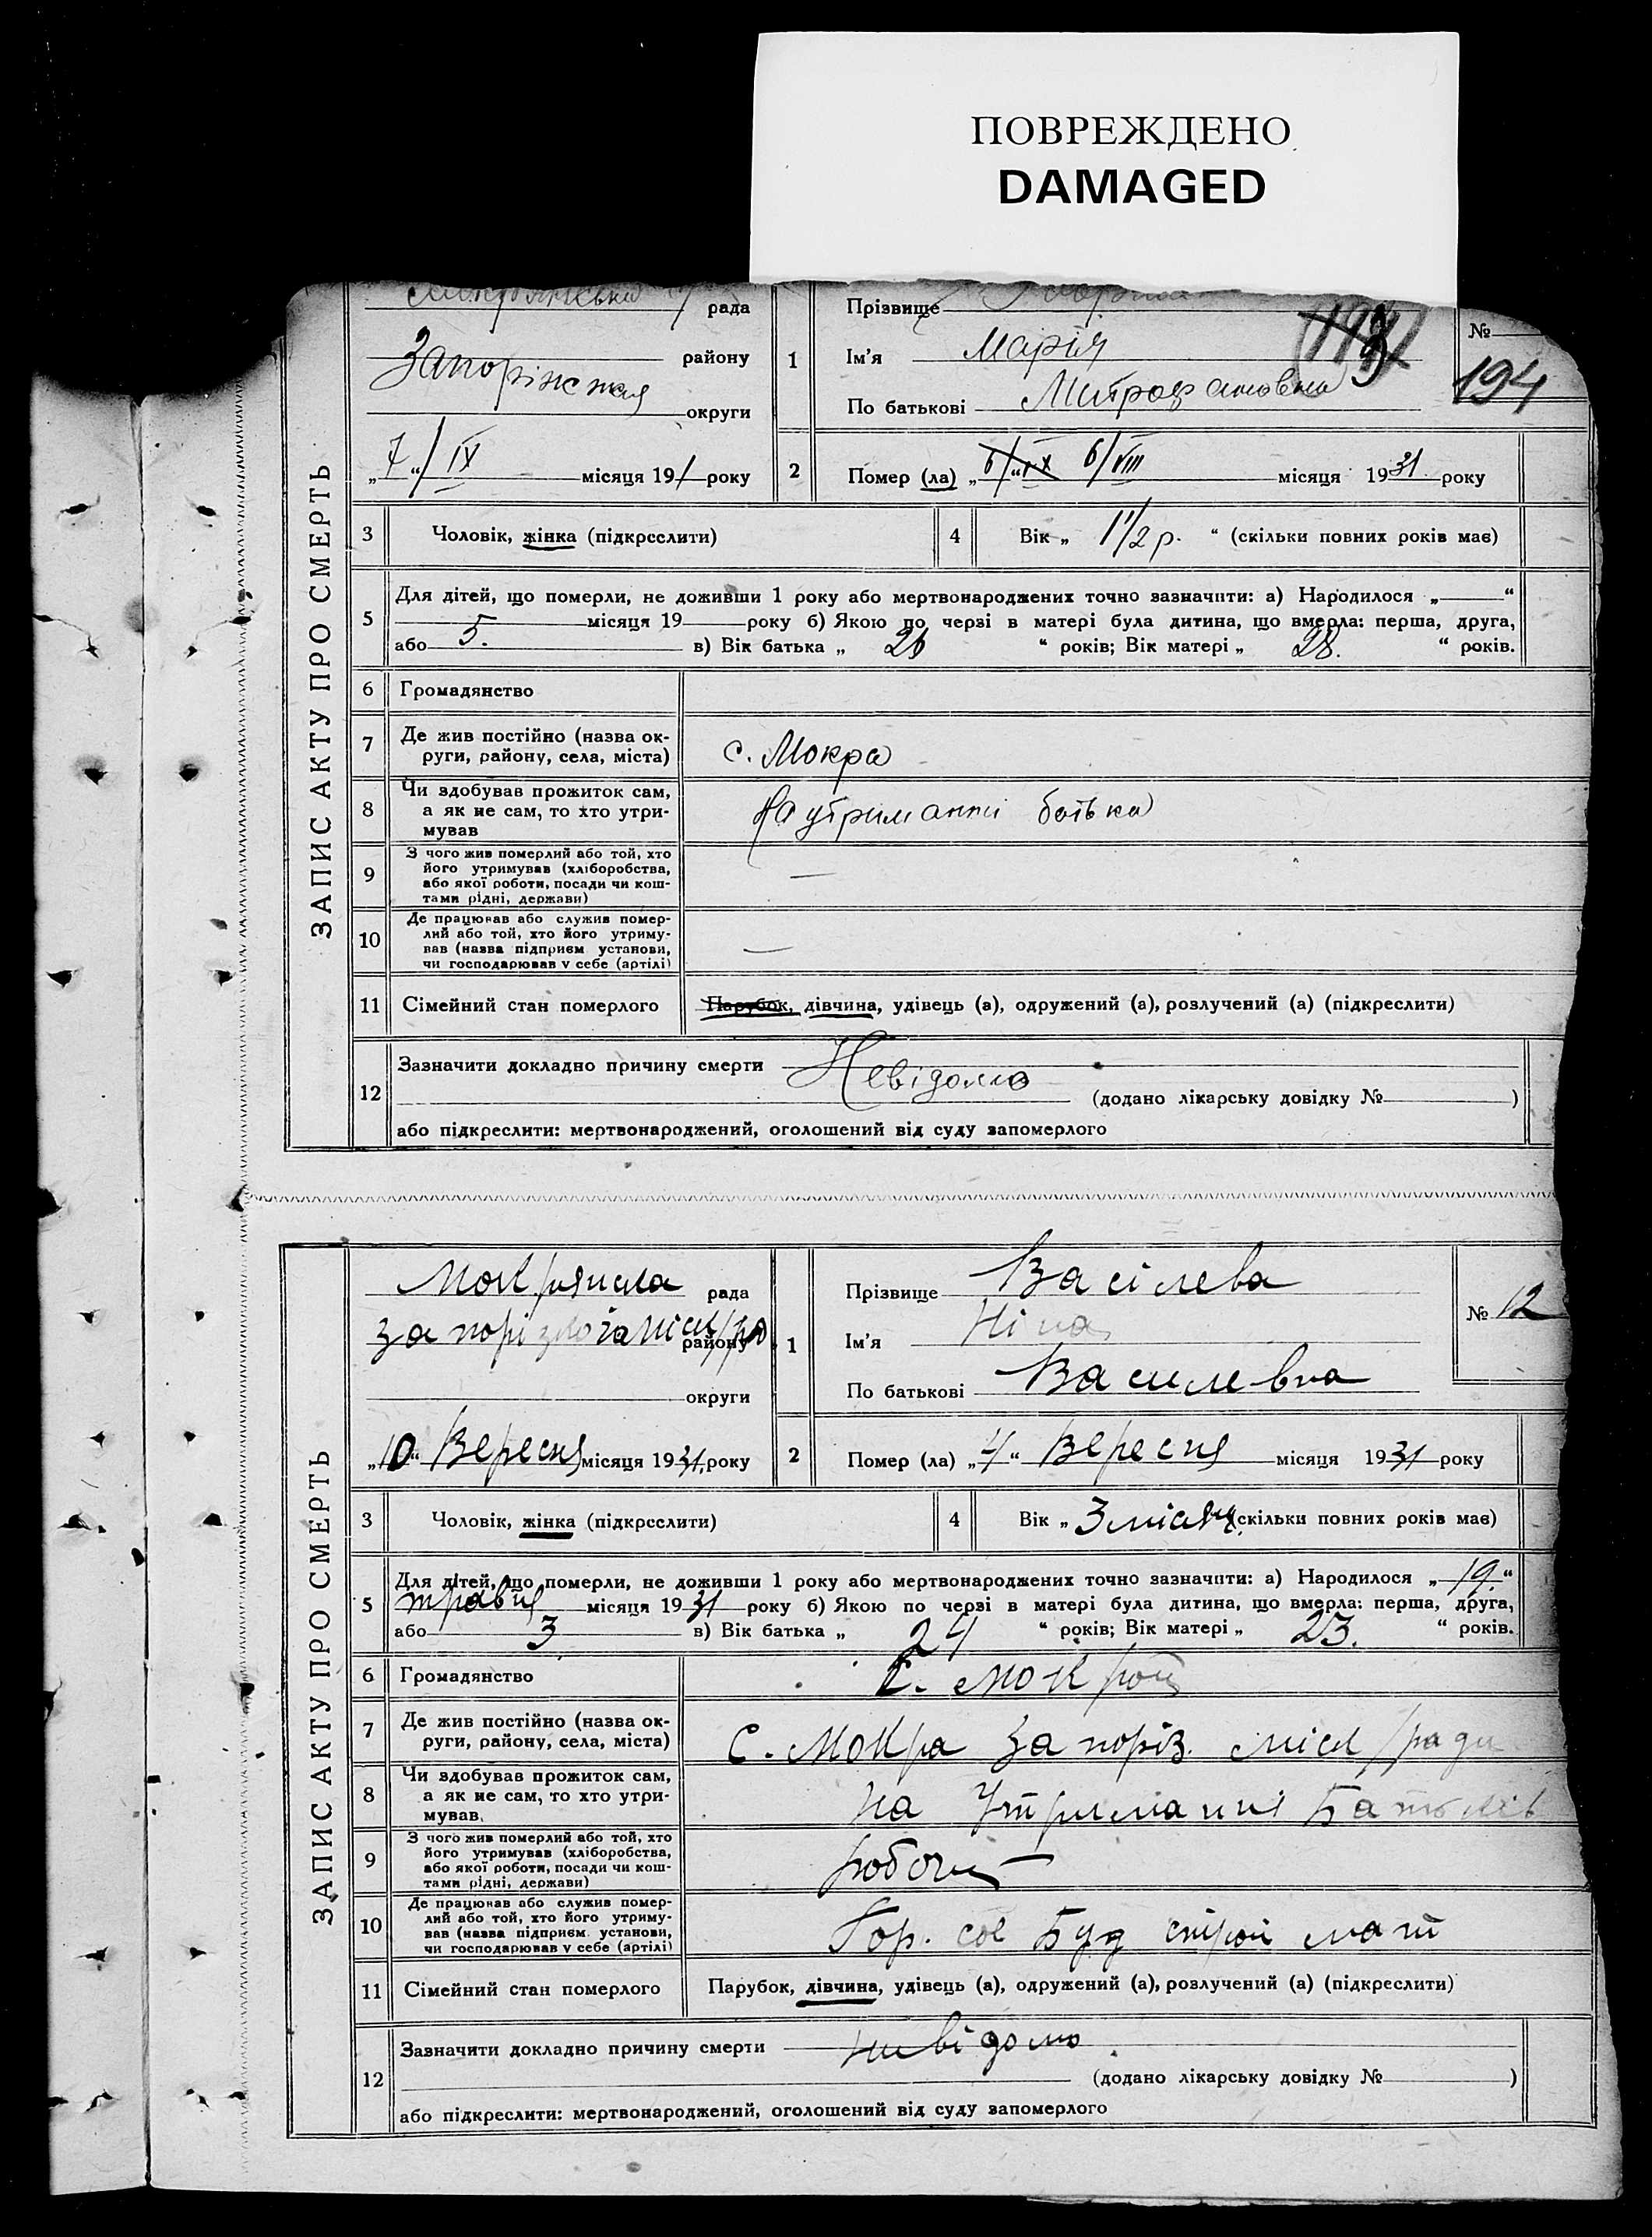 ПОВРЕЖДЕНО
DAMAGED
ЗАПИС АКТУ ПРО СМЕРТЬ
рада
Запоріжжя району
округи
„7“/IX місяця 19 року
1
Прізвище
Ім’я Марія
По батькові Митрофановна
№
194
2
Помер (ла) „6/“ІХ 6/VIII місяця 1931 року
3 Чоловік, жінка (підкреслити)
4 Вік „ 1 1/2 р. “ (скільки повних років має)
5 Для дітей, що померли, не доживши 1 року або мертвонароджених точно зазначити: а) Народилося „ “
місяця 19 року б) Якою по черзі в матері була дитина, що вмерла: перша, друга,
або 5. в) Вік батька „ 26 “ років; Вік матері „ 28. “ років.
6 Громадянство
7 Де жив постійно (назва ок-
руги, району, села, міста)
с. Мокра
8 Чи здобував прожиток сам,
а як не сам, то хто утри-
мував
На утриманні батька
9 З чого жив померлий або той, хто
його утримував (хліборобства,
або якої роботи, посади чи кош-
тами рідні, держави)
—
10 Де працював або служив помер-
лий або той, хто його утриму-
вав (назва підприєм. установи,
чи господарював у себе (артілі)
—
11 Сімейний стан померлого
Парубок, дівчина, удівець (а), одружений (а), розлучений (а) (підкреслити)
12 Зазначити докладно причину смерти Невідомо
(додано лікарську довідку № )
або підкреслити: мертвонароджений, оголошений від суду запомерлого
ЗАПИС АКТУ ПРО СМЕРТЬ
Мокрянська рада
району
округи
„10“ Вересня місяця 1931 року
1
Прізвище Васілева
Ім’я Ніна
По батькові Василевна
№ 12
2
Помер (ла) „4“ Вересня місяця 1931 року
3 Чоловік, жінка (підкреслити)
4 Вік „ 3 місяц. (скільки повних років має)
5 Для дітей, що померли, не доживши 1 року або мертвонароджених точно зазначити: а) Народилося „19.“
травня місяця 1931 року б) Якою по черзі в матері була дитина, що вмерла: перша, друга,
або 3 в) Вік батька „ 24 “ років; Вік матері „ 23. “ років.
6 Громадянство
с. Мокрой
7 Де жив постійно (назва ок-
руги, району, села, міста)
с. Мокра Запоріз. міск/ради
8 Чи здобував прожиток сам,
а як не сам, то хто утри-
мував.
На Утриманні Батьків
9 З чого жив померлий або той, хто
його утримував (хліборобства,
або якої роботи, посади чи кош-
тами рідні, держави)
робочи —
10 Де працював або служив помер-
лий або той, хто його утриму-
вав (назва підприєм. установи,
чи господарював у себе (артілі)
Буд строй мат
11 Сімейний стан померлого
Парубок, дівчина, удівець (а), одружений (а), розлучений (а) (підкреслити)
12 Зазначити докладно причину смерти Нивідомо
(додано лікарську довідку № )
або підкреслити: мертвонароджений, оголошений від суду запомерлого